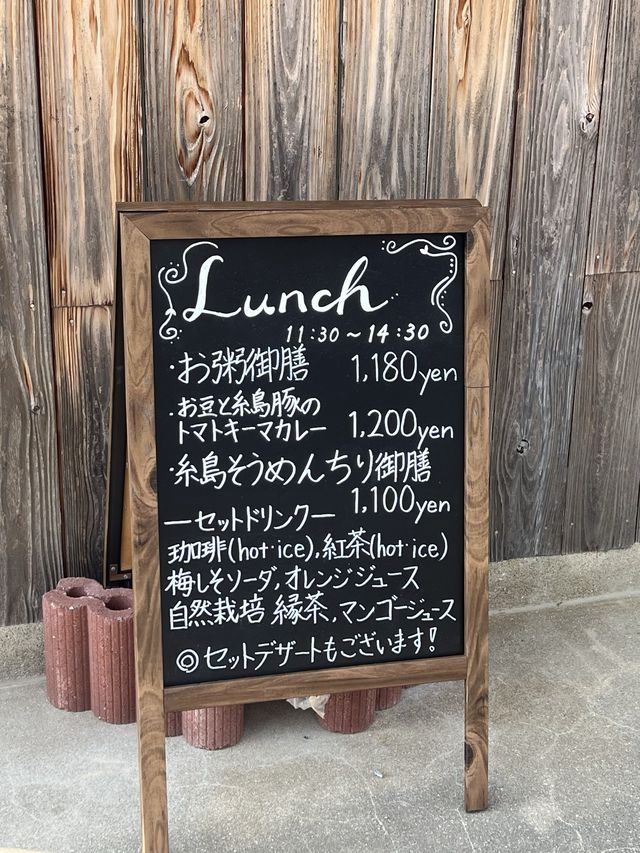 Lunch
11:30～14:30
・お粥御膳 1,180yen
・お豆と糸島豚の
トマトキーマカレー 1,200yen
・糸島そうめんちり御膳
1,100yen
ーセットドリンクー
珈琲(hot・ice),紅茶(hot・ice)
梅しそソーダ,オレンジジュース
自然栽培 縁茶,マンゴージュース
◎セットデザートもございます!